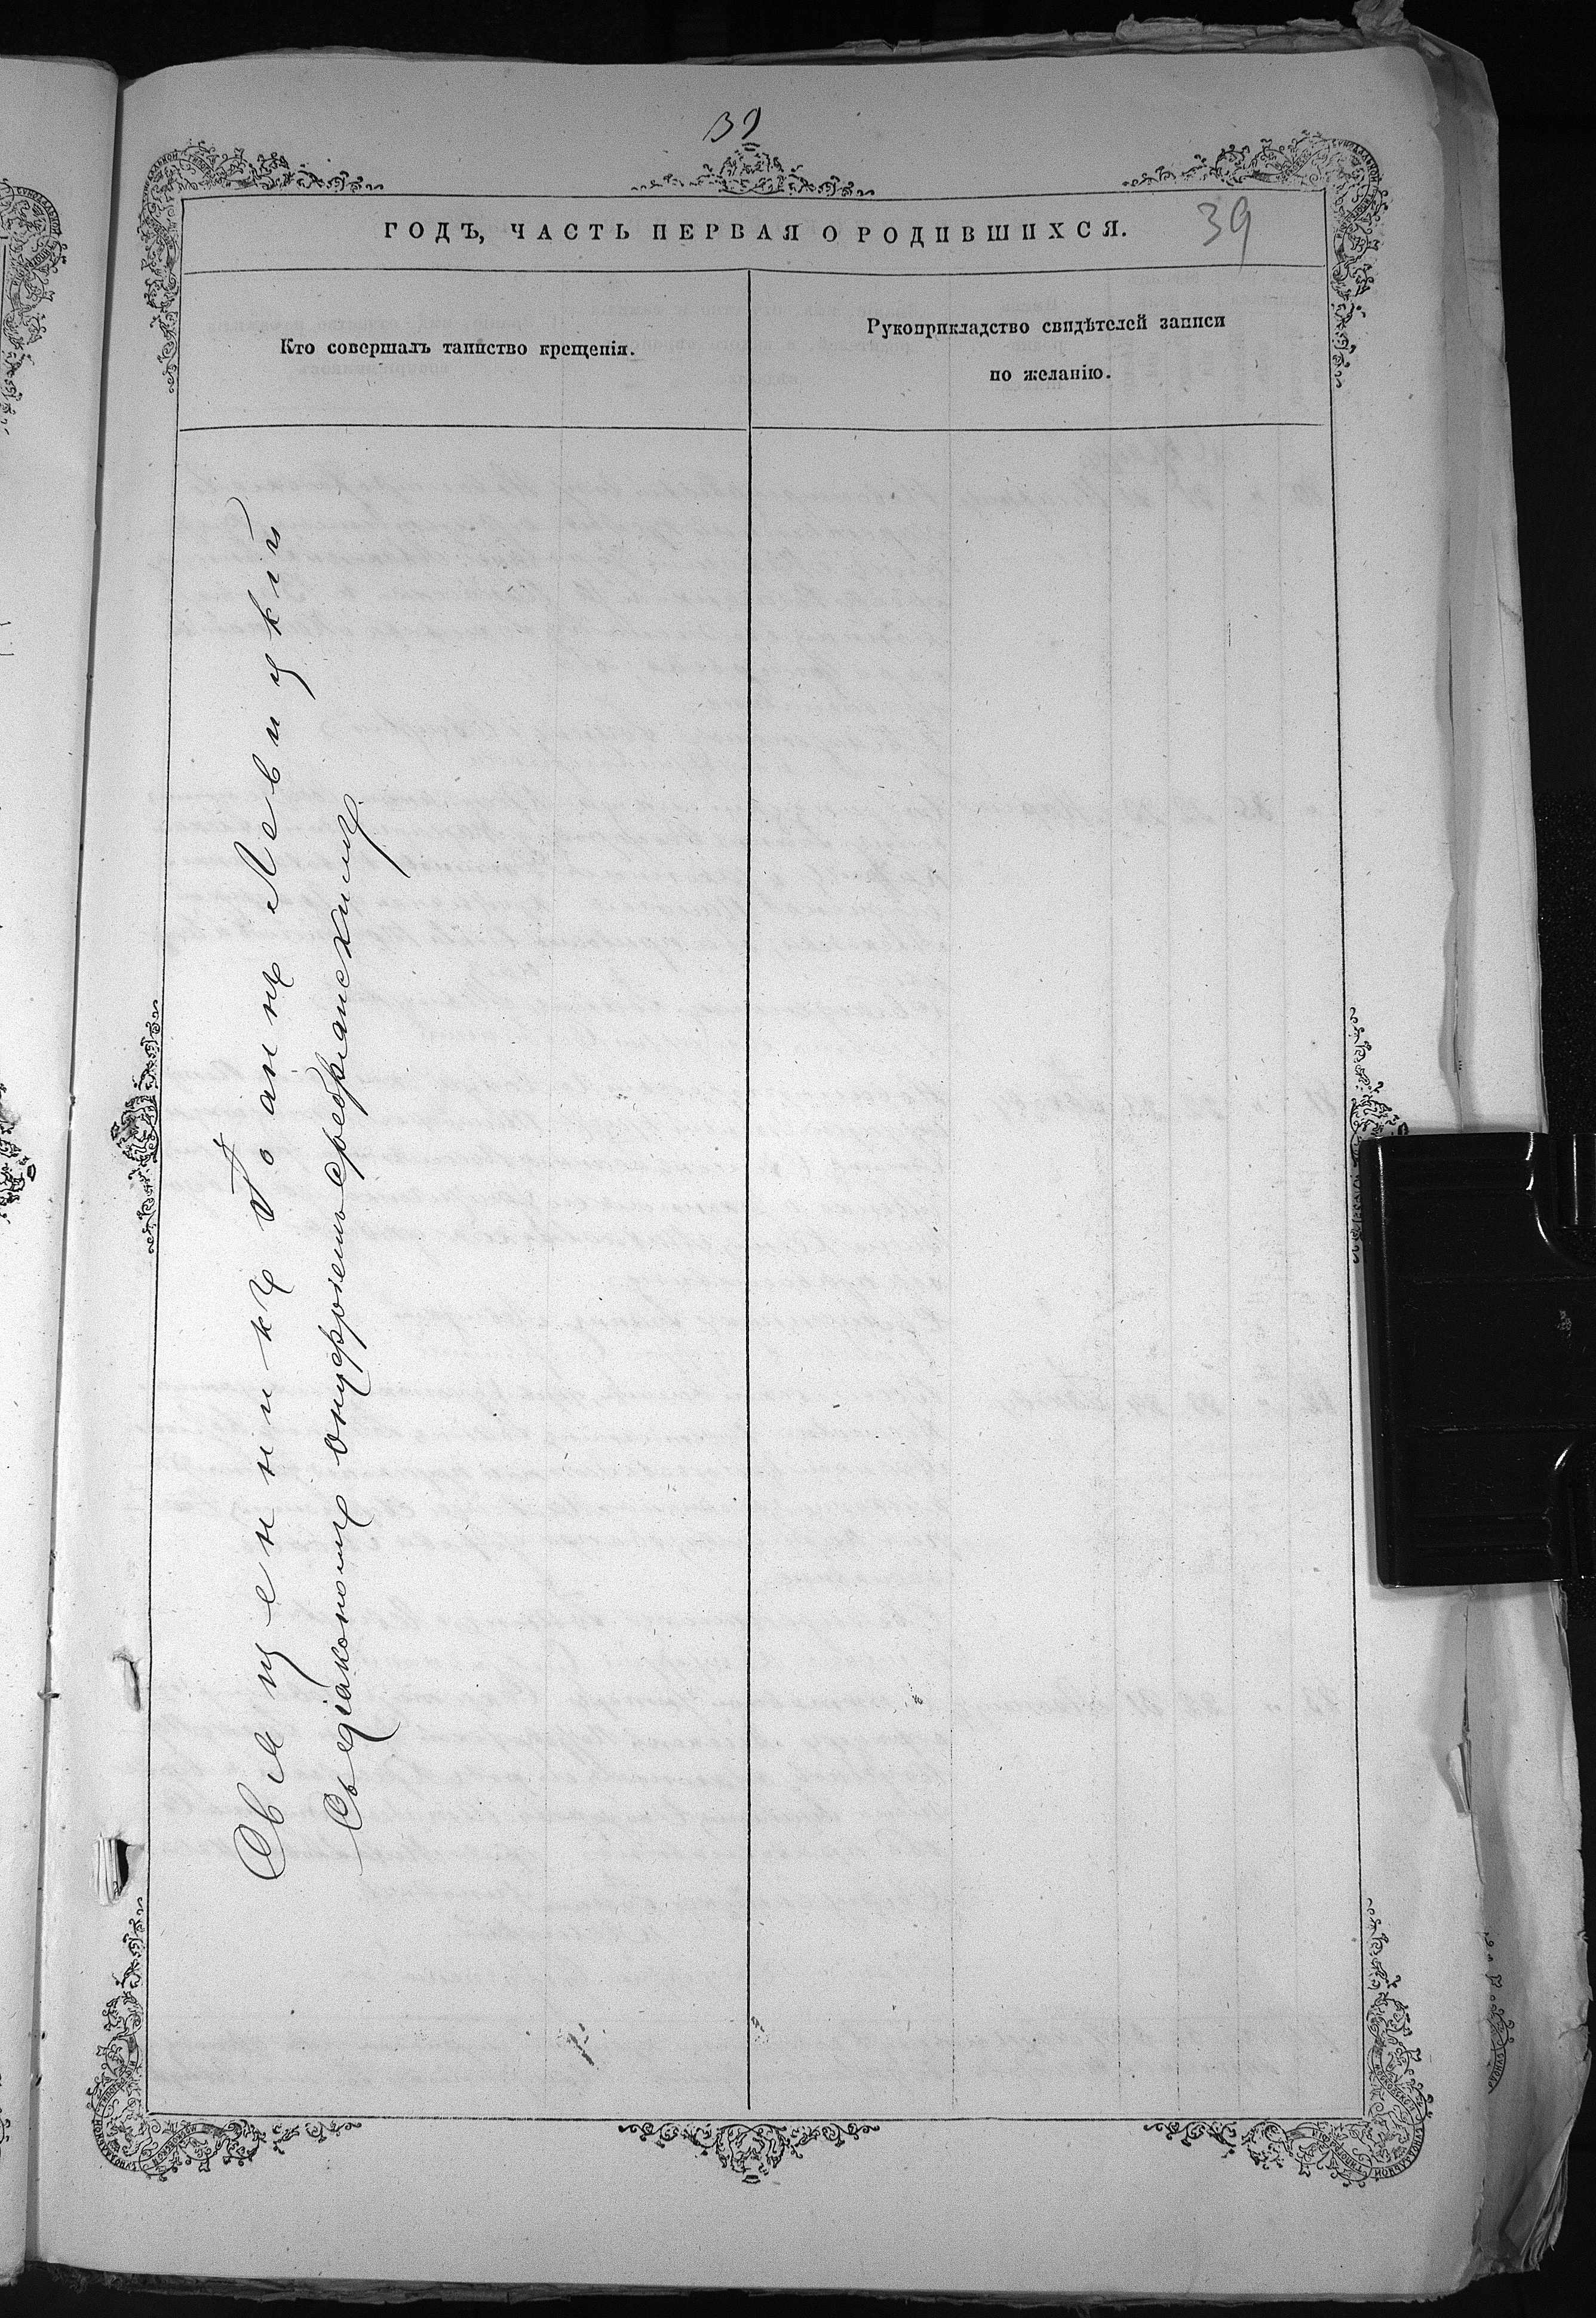 39
ГОДЪ, ЧАСТЬ ПЕРВАЯ О РОДИВШИХСЯ.
39
Кто совершалъ таинство крещенія.
Рукоприкладство свидѣтелей записи
по желанію.
Священникъ Іоаннъ Левицкій
Съ діакономъ Онуфріемъ Сребрянскимъ